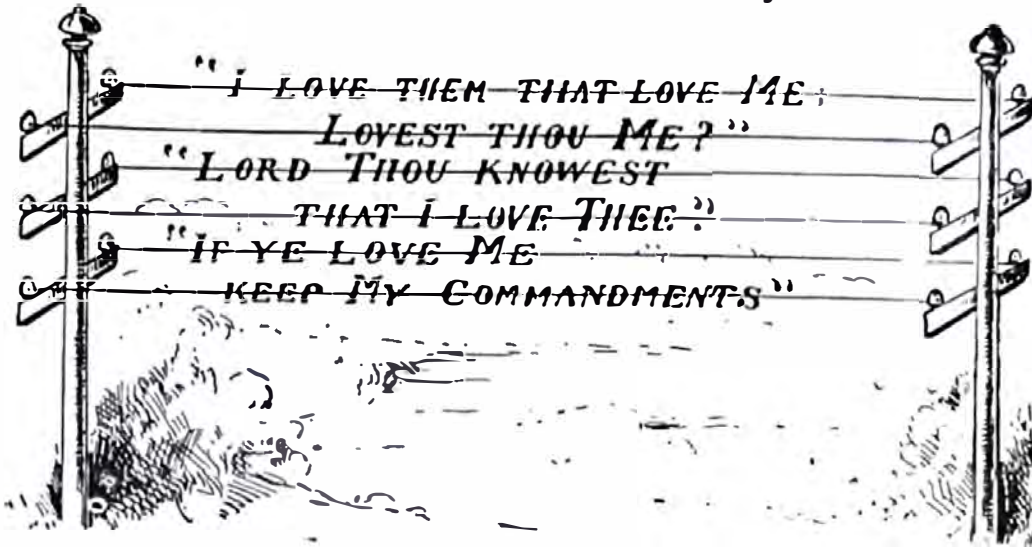 "I LOVE THEM THAT LOVE ME;
LOVEST THOU ME?"
"LORD THOU KNOWEST
THAT I LOVE THEE."
"IF YE LOVE ME
KEEP MY COMMANDMENTS"